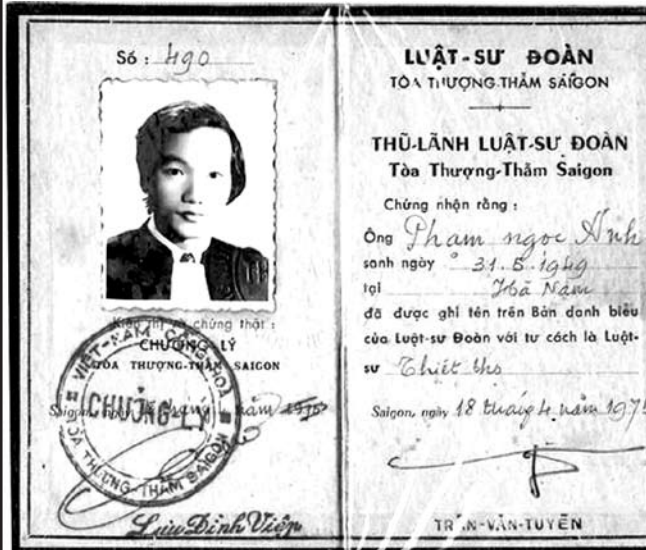 Số : 490
Kiến thị và chứng thật :
CHƯỞNG-LÝ
TÒA THƯỢNG-THẨM SAIGON
VIỆT-NAM CỘNG-HÒA
CHƯỞNG-LÝ
TÒA THƯỢNG-THẨM SAIGON
Saigon, ngày
năm 1975
Lưu Đình Việp
LUẬT-SƯ ĐOÀN
TÒA THƯỢNG-THẨM SÀIGON
THỦ-LÃNH LUẬT-SƯ ĐOÀN
Tòa Thượng-Thẩm Saigon
Chứng nhận rằng :
Ông Phạm ngọc Anh
sanh ngày 31.5.1949
tại Hà Nam
đã được ghi tên trên Bản danh biểu
của Luật-sư Đoàn với tư cách là Luật-
sư Thiệt thọ
Saigon, ngày 18 tháng 4 năm 1975
TRẦN-VĂN-TUYÊN